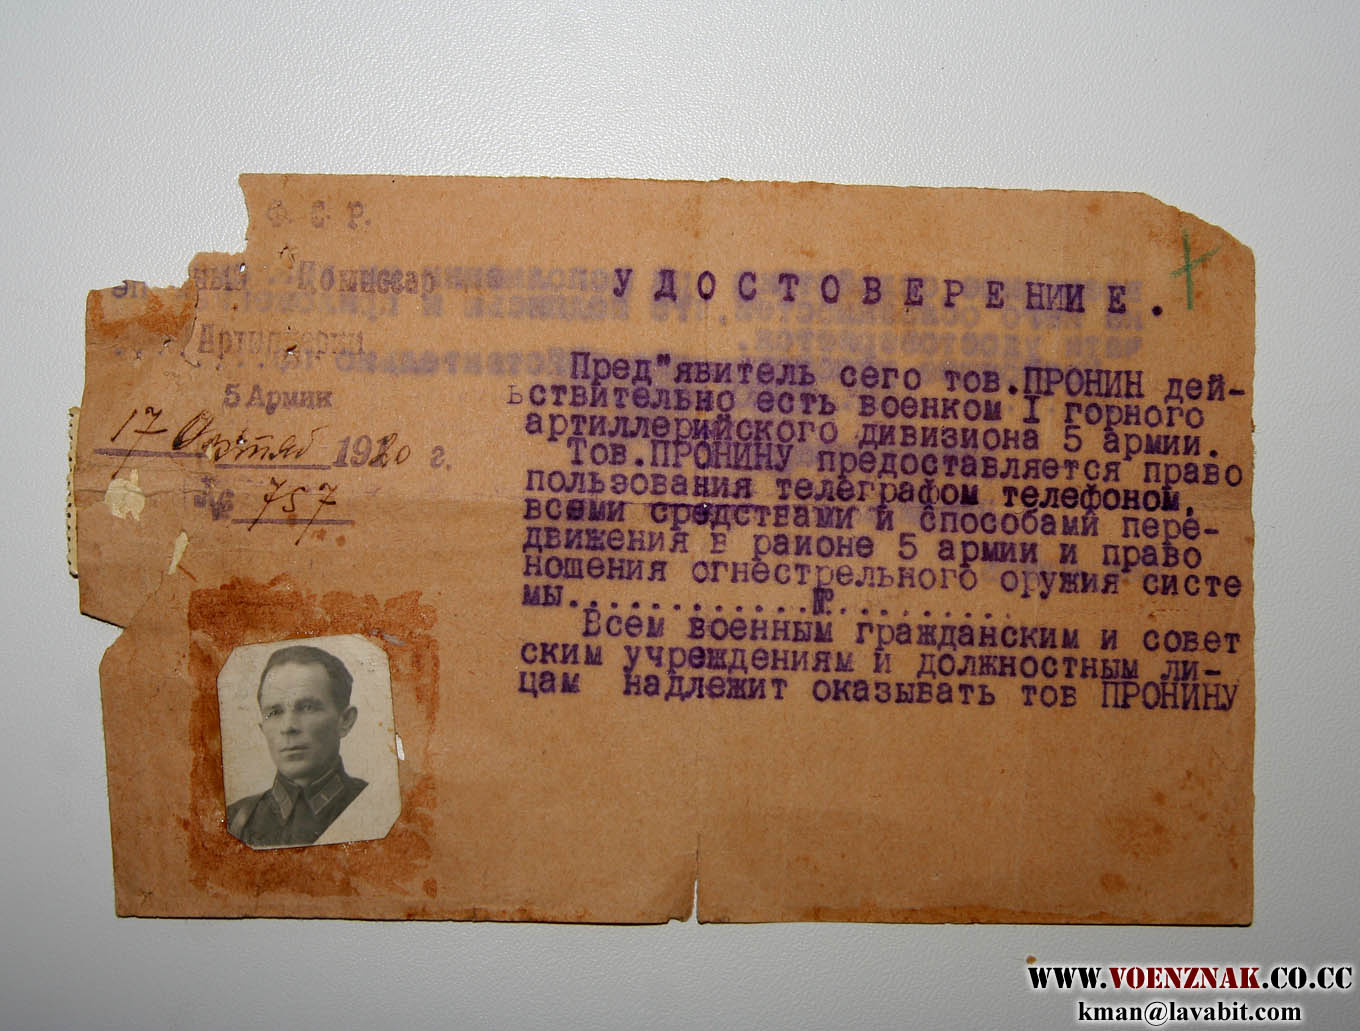 Ф. С. Р.
ный Комиссар
Артиллерии
5 Армии
17 Октяб 1920 г.
№ 757
УДОСТОВЕРЕНИИЕ.
Пред"явитель сего тов.ПРОНИН дей-
ьствительно есть военком I горного
артиллерийского дивизиона 5 армии.
Тов.ПРОНИНУ предоставляется право
пользования телеграфом телефоном,
всеми средствами и способами пере-
движения в районе 5 армии и право
ношения огнестрельного оружия систе
мы.............№..........
Всем военным гражданским и совет
ским учреждениям и должностным ли-
цам надлежит оказывать тов ПРОНИНУ
WWW.VOENZNAK.CO.CC
kman@lavabit.com